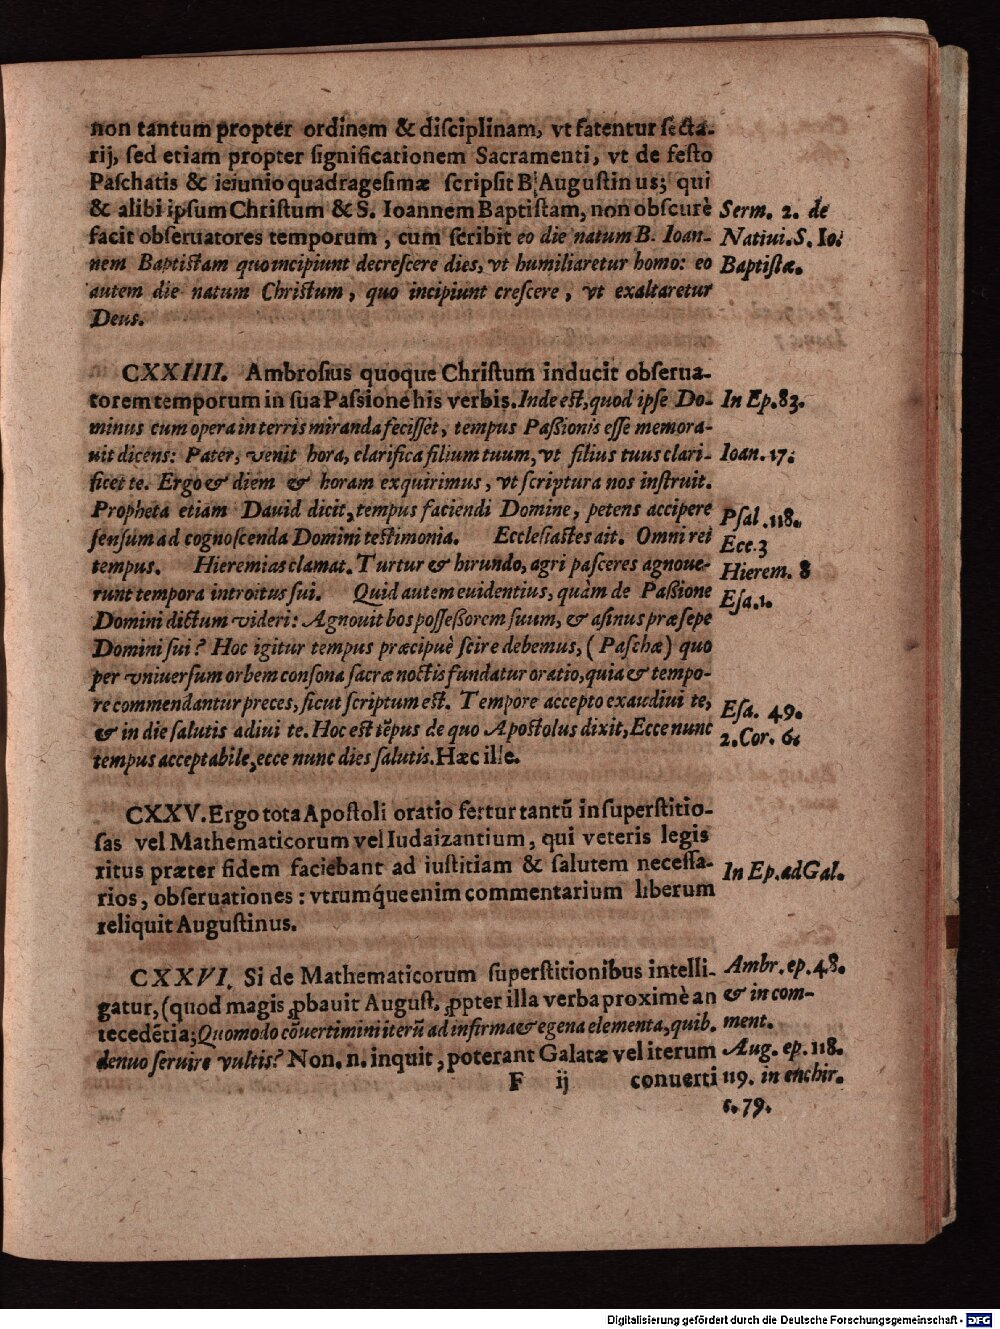 non tantum propter ordinem & disciplinam, vt fatentur secta-
rij, sed etiam propter significationem Sacramenti, vt de festo
Paschatis & ieiunio quadragesimæ scripsit B. Augustinus; qui
& alibi ipsum Christum & S. Ioannem Baptistam, non obscurè
Serm. 2. de
facit obseruatores temporum, cum scribit eo die natum B. Ioan-
Natiui. S. Io:
nem Baptistam quo incipiunt decrescere dies, vt humiliaretur homo: eo
Baptistæ.
autem die natum Christum, quo incipiunt crescere, vt exaltaretur
Deus.
CXXIIII. Ambrosius quoque Christum inducit obserua-
torem temporum in sua Passione his verbis. Inde est, quod ipse Do-
In Ep. 83.
minus cum opera in terris miranda fecisset, tempus Passionis esse memora-
uit dicens: Pater, venit hora, clarifica filium tuum, vt filius tuus clari-
Ioan. 17.
ficet te. Ergo & diem & horam exquirimus, vt scriptura nos instruit.
Propheta etiam Dauid dicit, tempus faciendi Domine, petens accipere
Psal. 118.
sensum ad cognoscenda Domini testimonia. Ecclesiastes ait. Omni rei
Ecc. 3
tempus. Hieremias clamat. Turtur & hirundo, agri passeres agnoue-
Hierem. 8
runt tempora introitus sui. Quid autem euidentius, quàm de Passione
Esa. 1.
Domini dictum videri: Agnouit bos possessorem suum, & asinus præsepe
Domini sui? Hoc igitur tempus præcipuè scire debemus, (Paschæ) quo
per vniuersum orbem consona sacræ noctis fundatur oratio, quia & tempo-
re commendantur preces, sicut scriptum est. Tempore accepto exaudiui te,
Esa. 49.
& in die salutis adiui te. Hoc est tēpus de quo Apostolus dixit, Ecce nunc
2. Cor. 6.
tempus acceptabile, ecce nunc dies salutis. Hæc ille.
CXXV. Ergo tota Apostoli oratio fertur tantū in superstitio-
sas vel Mathematicorum vel Iudaizantium, qui veteris legis
ritus præter fidem faciebant ad iustitiam & salutem necessa-
In Ep. ad Gal.
rios, obseruationes: vtrumq́ue enim commentarium liberum
reliquit Augustinus.
CXXVI. Si de Mathematicorum superstitionibus intelli-
Ambr. ep. 48.
gatur, (quod magis ꝓbauit August. ꝓpter illa verba proximè an
& in com-
tecedētia; Quomodo cōuertimini iterū ad infirma & egena elementa, quib.
ment.
denuo seruire vultis? Non. n. inquit, poterant Galatæ vel iterum
Aug. ep. 118.
F ij conuerti
119. in enchir.
c. 79.
Digitalisierung gefördert durch die Deutsche Forschungsgemeinschaft - DFG